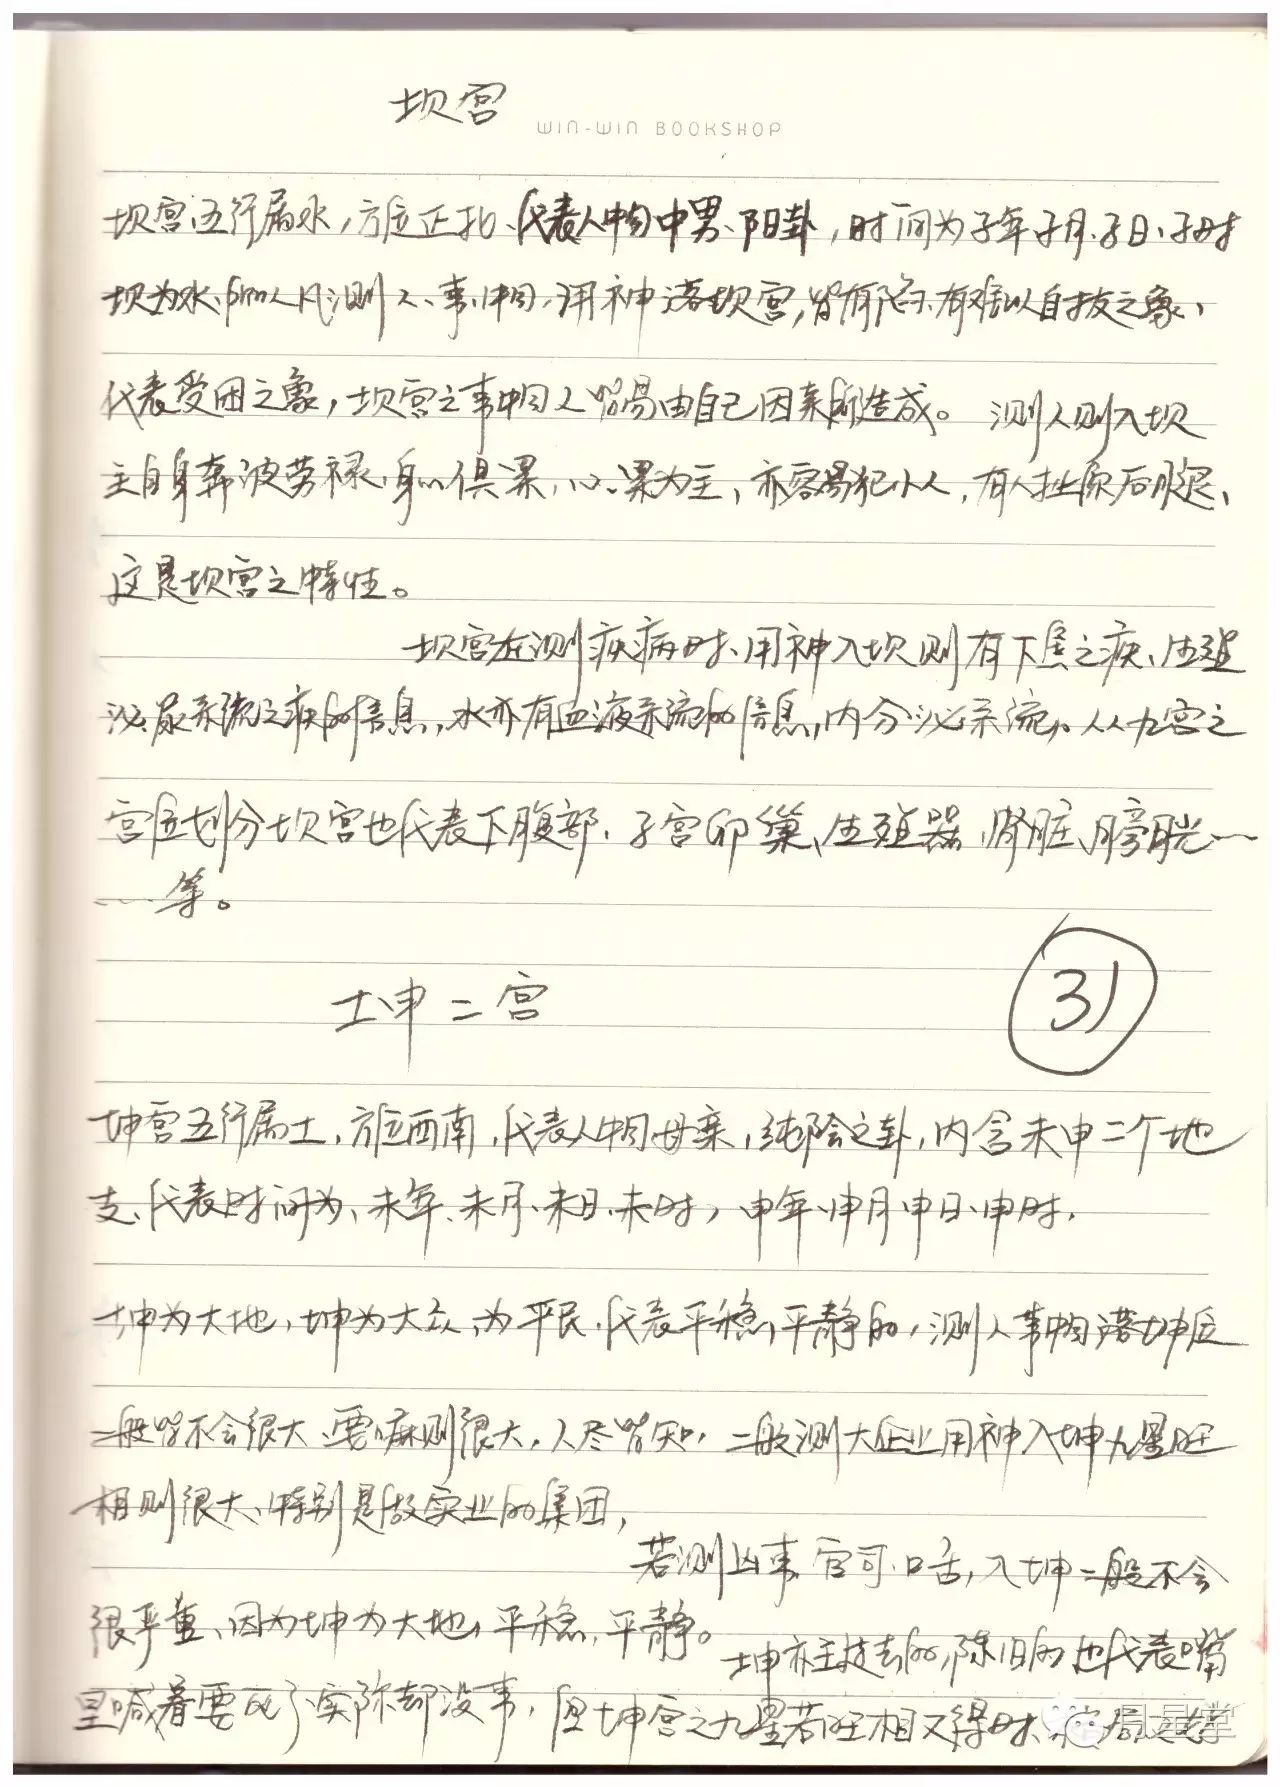 坎宫
WIN-WIN BOOKSHOP
坎宫五行属水，方位正北、代表人物中男、阳卦，时间为子年子月、子日、子时
坎为水、所以凡测人、事、物，用神落坎宫，皆有陷、有难以自拔之象、
代表受困之象，坎宫之事物人皆易由自己因素所造成。 测人则入坎
主自身奔波劳禄、身心俱累、心累为主，亦容易犯小人，有人扯原后腿、
这是坎宫之特性。
坎宫在测疾病时、用神入坎则有下焦之疾、生殖
泌尿系统之疾的信息，水亦有血液系流的信息，内分泌系流。从九宫之
宫位划分坎宫也代表下腹部、子宫卵巢、生殖器、肾脏、膀胱……
……等。
坤二宫
31
坤宫五行属土，方位西南，代表人物母亲，纯阴之卦，内含未申二个地
支、代表时间为、未年、未月、未日、未时，申年、申月申日、申时，
坤为大地，坤为大众，为平民，代表平稳，平静的，测人事物落坤宫
一般皆不会很大、要嘛则很大，人尽皆知，一般测大企业用神入坤九星旺
相则很大、特别是做实业的集团，
若测凶事、官司、口舌，入坤一般不会
很严重、因为坤为大地，平稳，平静。
坤亦主过去的，陈旧的也代表嘴
里喊着要死了、实际却没事，但坤宫之九星若旺相又得时、